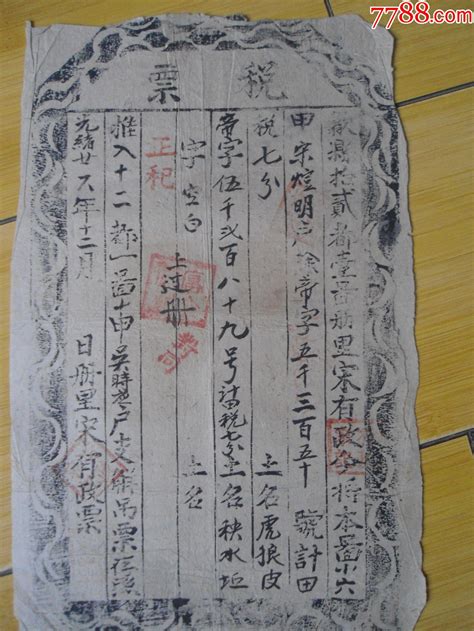 7788.com
稅票
縣拾貳都壹啚册里宋有政今將本啚六
甲宋煌明户除帝字五千三百五十號計田
稅七分 土名虎狼皮
帝字伍千弍百八十九号計稅七分土名秧水坵
字空白 土名
上过册
推入十二都一啚十甲吳時 户支 吊票
光緒廿六年十二月 日册里宋有政票